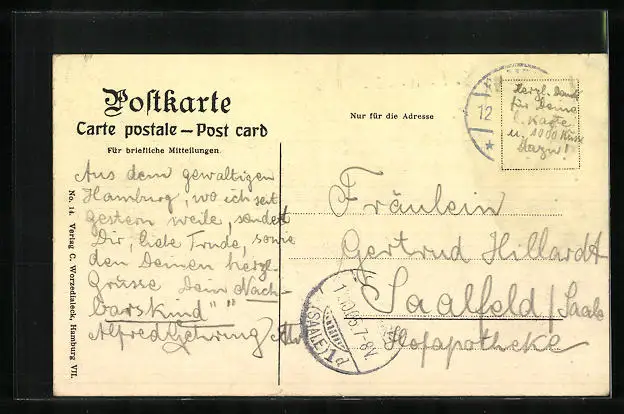 Postkarte
Carte postale — Post card
Für briefliche Mitteilungen.
Nur für die Adresse
12
Herzl. Dank
für Deine
l. Karte
u. 1000 Küsse
dazu!
Aus dem gewaltigen
Hamburg, wo ich seit
gestern weile, sendet
Dir, liebe Trude, sowie
den Deinen herzl.
Grüsse Dein Nach-
barskind
Alfred Gehring
Fräulein
Gertrud Hillardt
Saalfeld / Saale
Hofapotheke
(SAALE) 1d
7-8V.
No. 14. Verlag C. Worzedialeck, Hamburg VII.